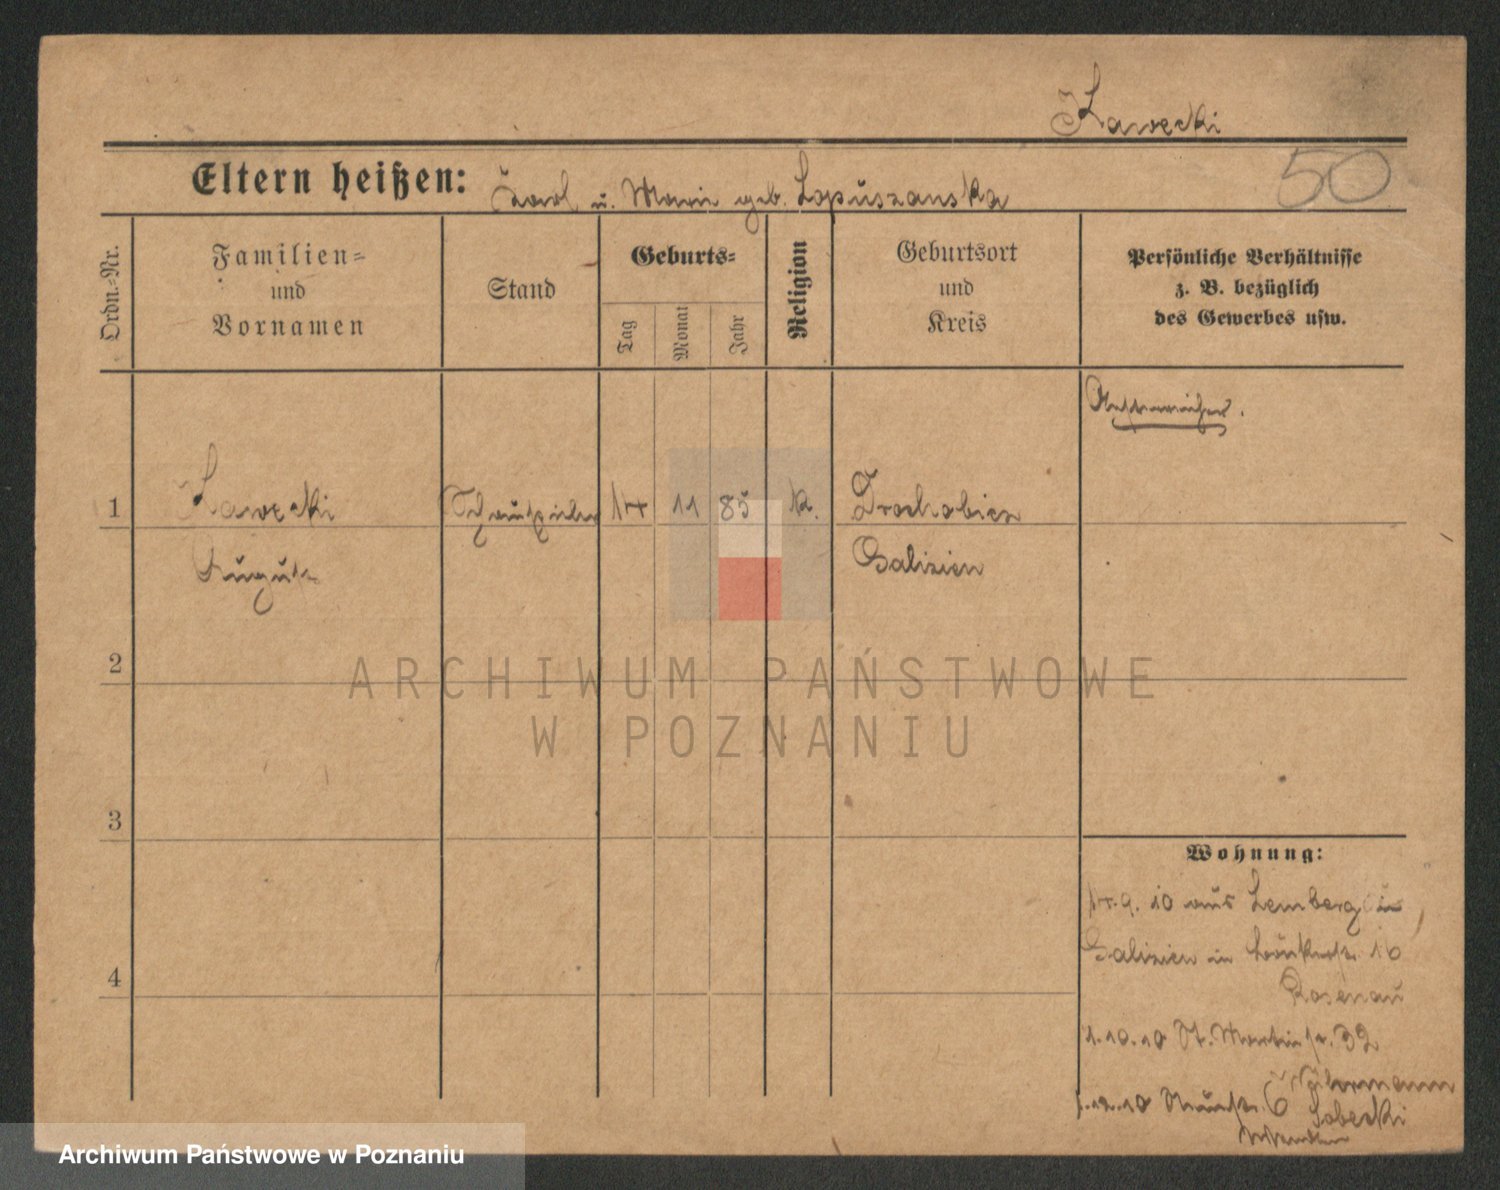 Kawecki
50
Eltern heißen: Karl u. Marie geb. Lopuszanska
Ordn.-Nr.
Familien-
und
Vornamen
Stand
Geburts-
Tag
Monat
Jahr
Religion
Geburtsort
und
Kreis
Persönliche Verhältnisse
z. B. bezüglich
des Gewerbes usw.
Oesterreicher.
1
Kawecki
Schauspieler
14
11
85
k.
Drohobicz
August
Galizien
2
3
4
Wohnung:
9. 10 aus Lemberg in
Galizien in 16
Rosenau
1.10.10 St. Martinstr. 32
1.12.10 6
Sobecki
ARCHIWUM PAŃSTWOWE
W POZNANIU
Archiwum Państwowe w Poznaniu